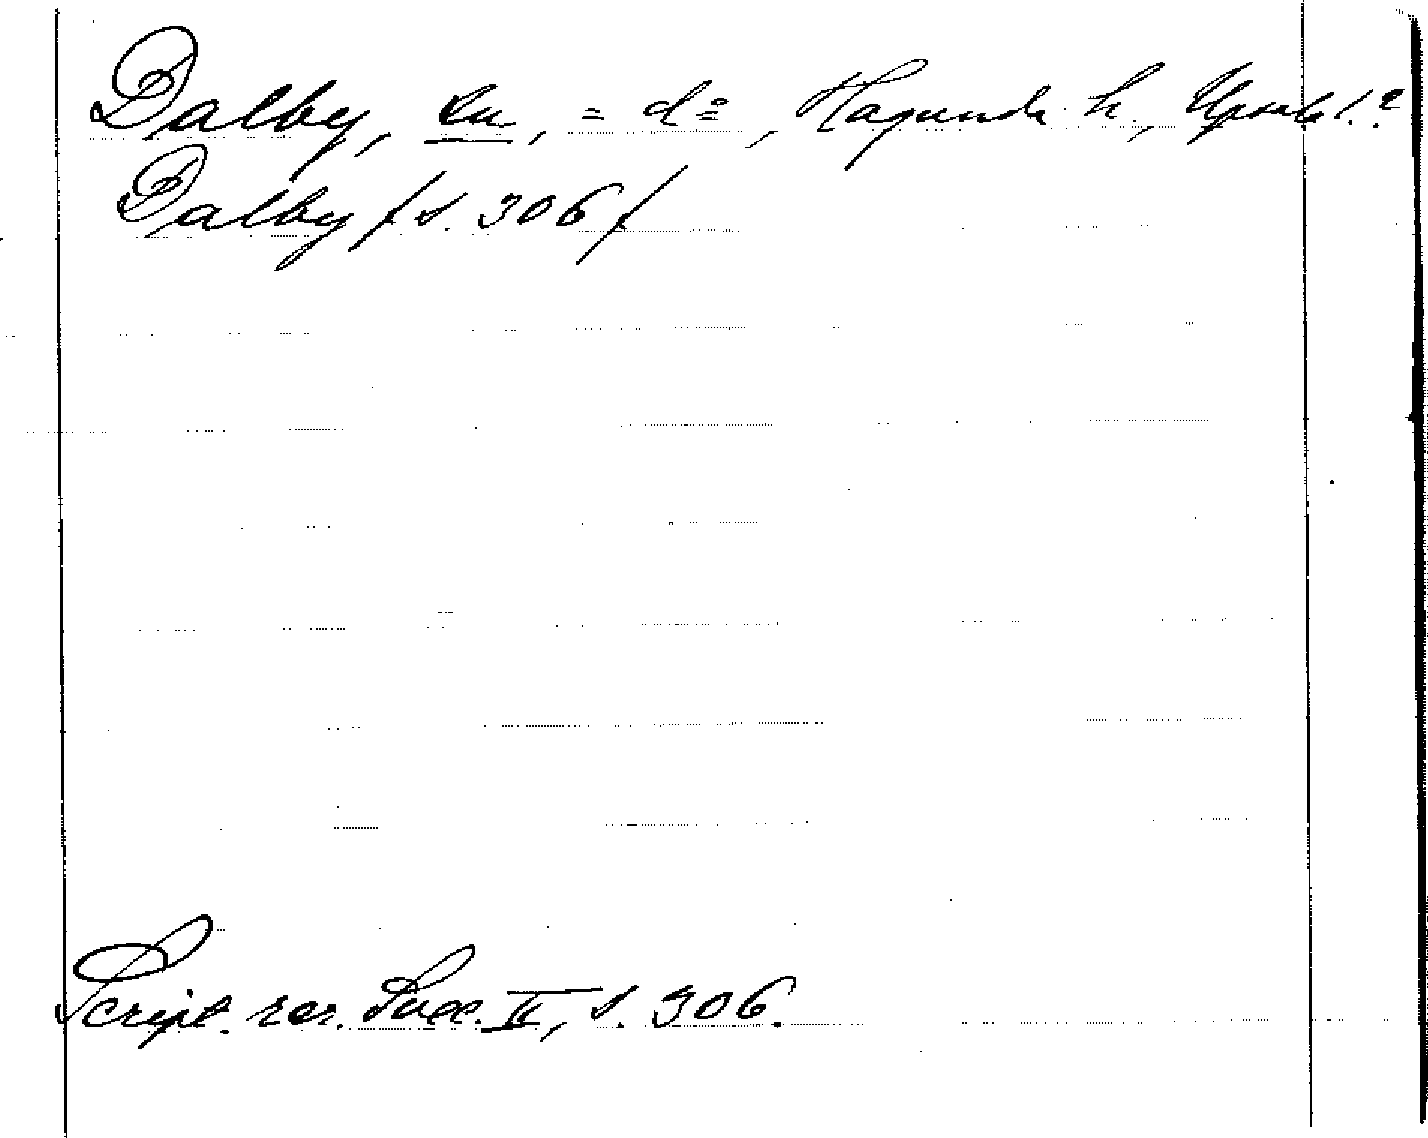 Dalby, kn, = d:o, Hagunda h., Upsala l.?
Dalby / s. 306 /
Script. rer. Suec. II, s. 306.